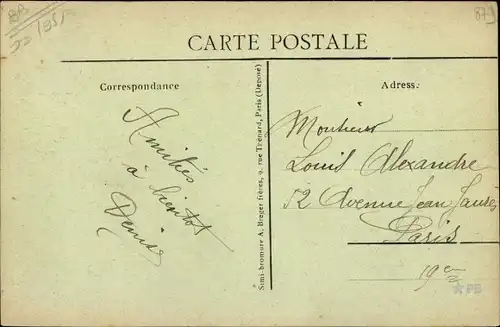 87
CARTE POSTALE
Correspondance
Adress:
Amitiés
à bientôt
Denise
Simi-bromure A. Breger frères, 9, rue Thénard, Paris (Déposé)
Monsieur
Louis Alexandre
52 Avenue Jean Jaurès
Paris
19e
PB